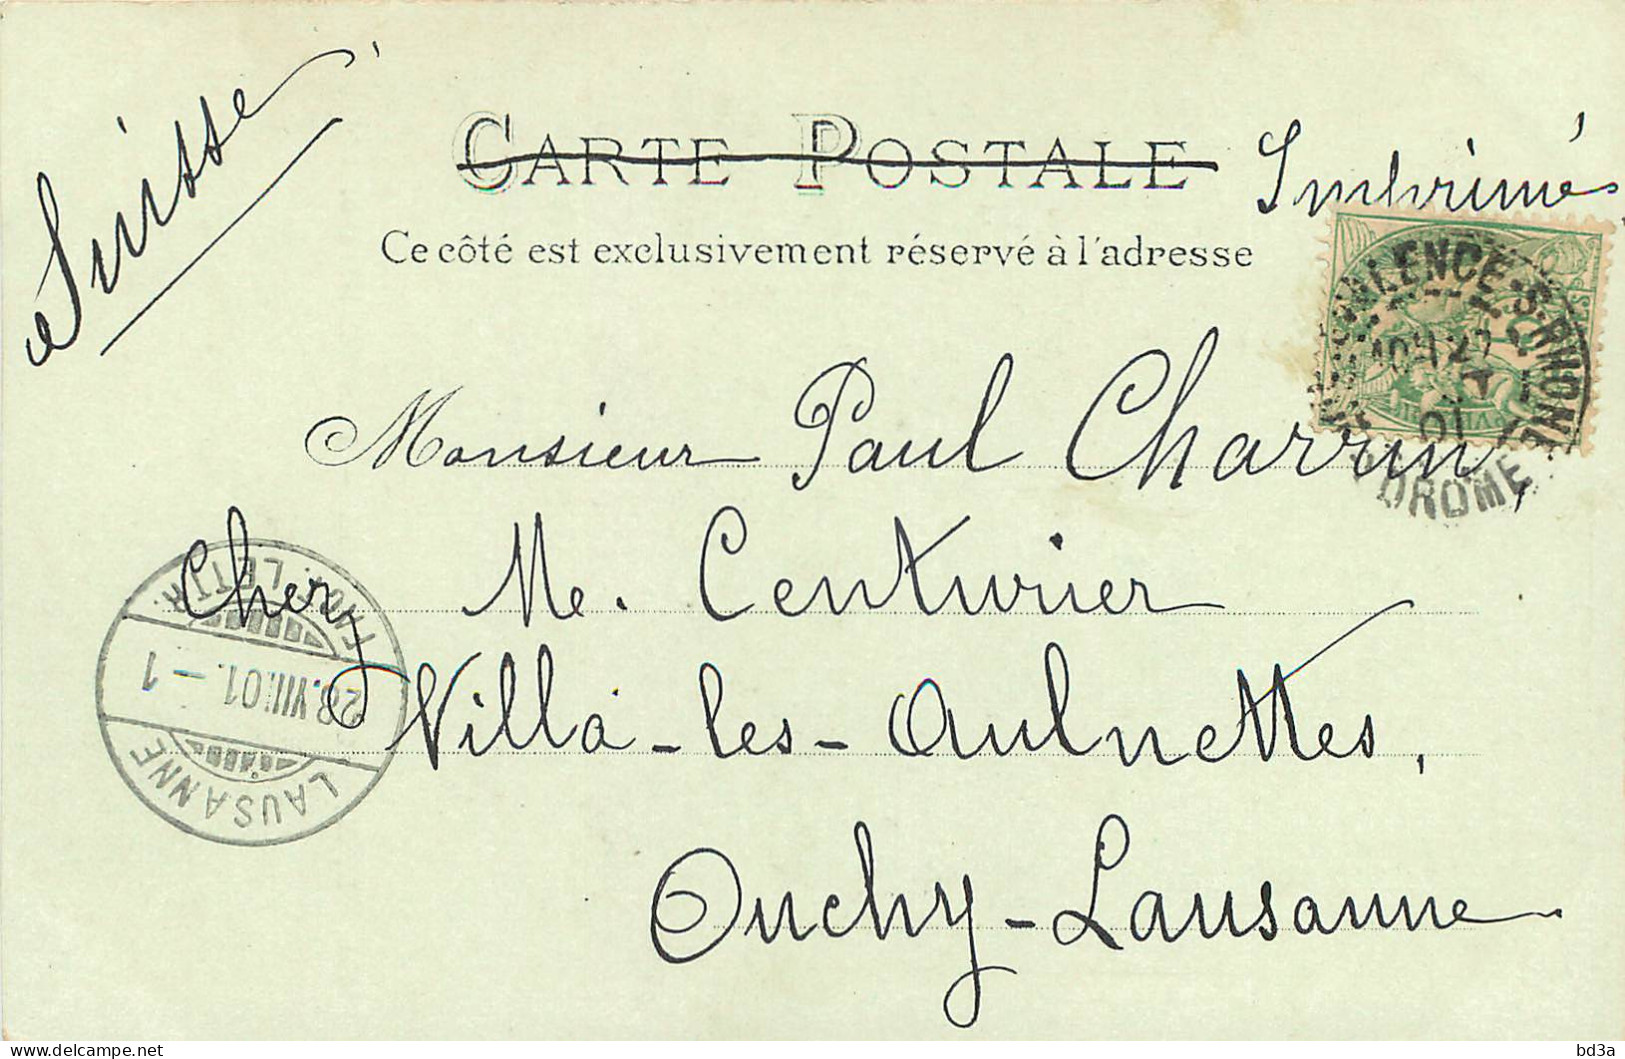 Suisse
CARTE POSTALE
Imprimés
Ce côté est exclusivement réservé à l'adresse
VALENCE-S-RHONE
01
DROME
Monsieur Paul Charrin,
Chez Me. Centurier
Villa-les-Aulnettes,
Ouchy-Lausanne
LETTR.
28.VIII.01.-1
LAUSANNE
delcampe.net
bd3a